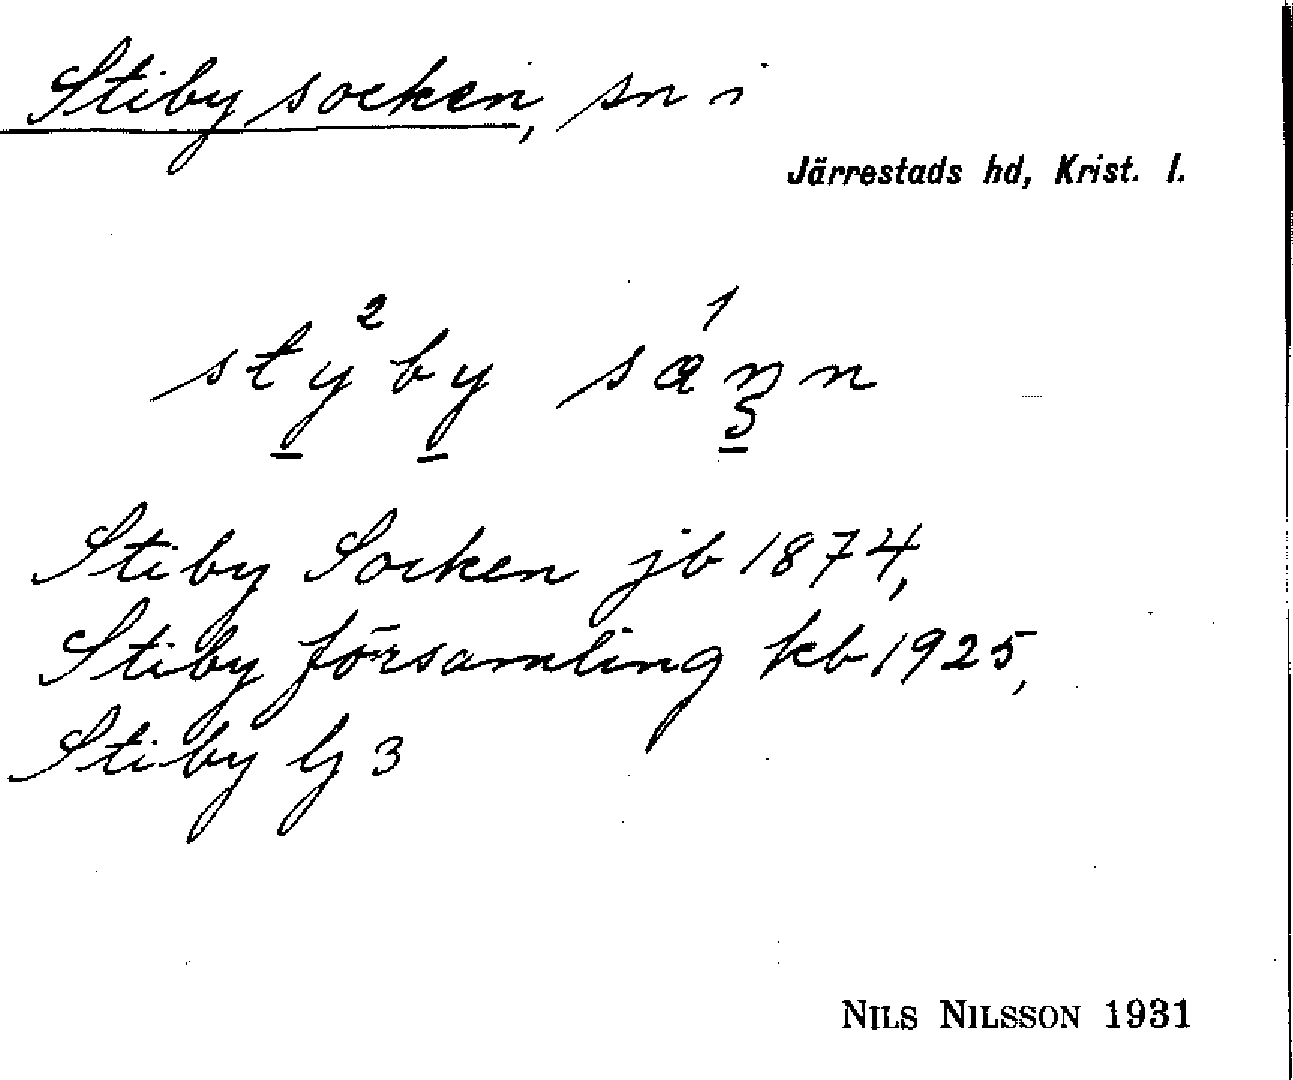 Stiby socken, sn i
Järrestads hd, Krist. l.
Stiby Socken jb 1874,
Stiby församling kb 1925,
Stiby Gj 3
NILS NILSSON 1931